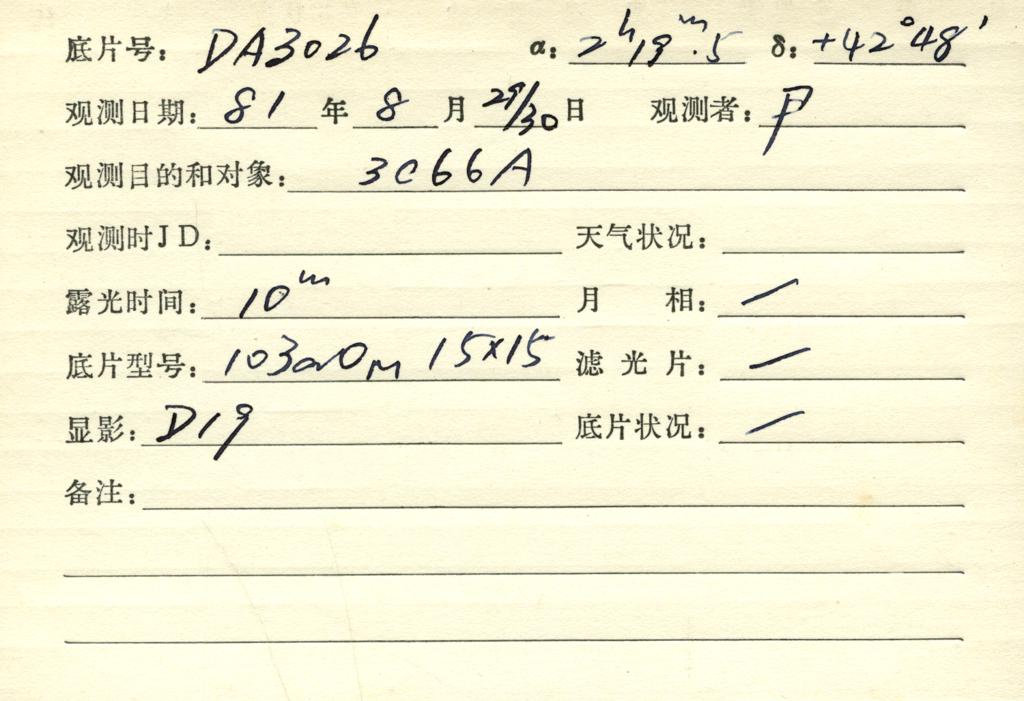 底片号: DA3026 α: 2ʰ19ᵐ.5 δ: +42°48'
观测日期: 81 年 8 月 29/30 日 观测者:
观测目的和对象: 3C66A
观测时JD: 天气状况:
露光时间: 10ᵐ 月 相: /
底片型号: 103aO 15×15 滤光片: /
显影: D19 底片状况: /
备注: